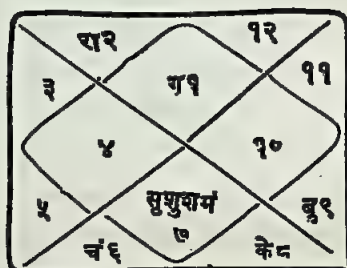 रा२ १२
३ ग१ ११
४ १०
५ सुशुशमं बृ९
७
चं६ के८